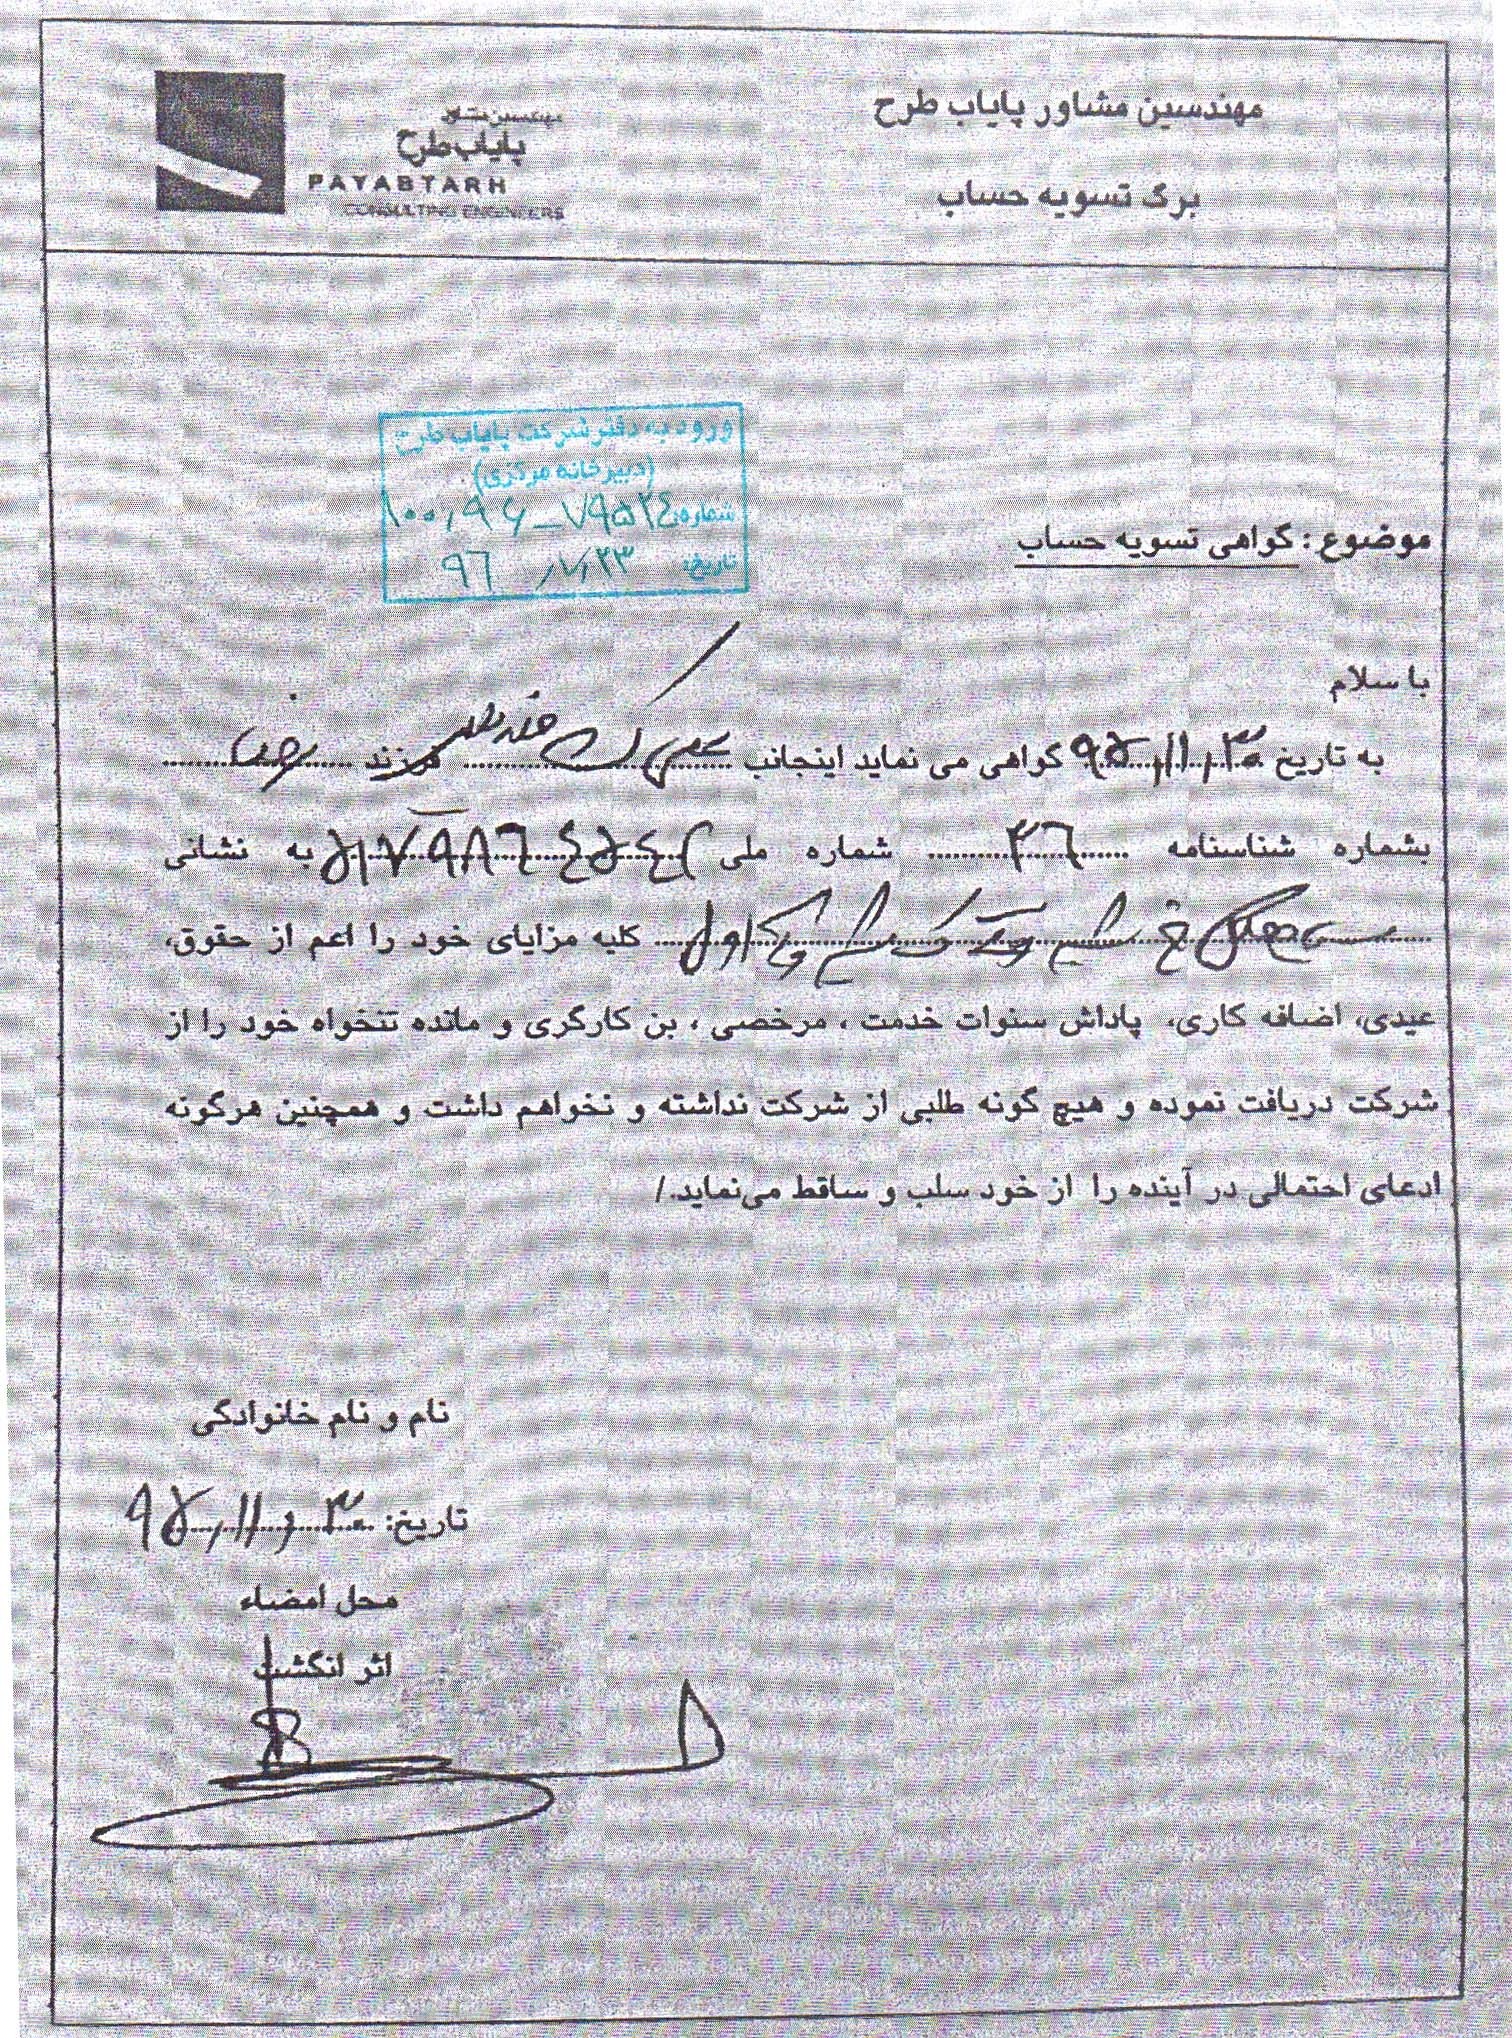 مهندسین مشاور پایاب طرح
برگ تسویه حساب
مهندسین مشاور
پایاب طرح
PAYABTARH
CONSULTING ENGINEERS
ورود به دفتر شرکت پایاب طرح
(دبیرخانه مرکزی)
شماره: ۱۰۰,۹۶-۷۹۵۲٤
تاریخ: ۹٦ ,۷,۲۳
موضوع : گواهی تسویه حساب
با سلام
به تاریخ ۹۵,۱۱,۳۰ گواهی می نماید اینجانب فرزند
بشماره شناسنامه ۳٦ شماره ملی به نشانی
کلیه مزایای خود را اعم از حقوق،
عیدی، اضافه کاری، پاداش سنوات خدمت ، مرخصی ، بن کارگری و مانده تنخواه خود را از
شرکت دریافت نموده و هیچ گونه طلبی از شرکت نداشته و نخواهم داشت و همچنین هرگونه
ادعای احتمالی در آینده را از خود سلب و ساقط می‌نماید./
نام و نام خانوادگی
تاریخ: ۹۵,۱۱,۳۰
محل امضاء
اثر انگشت